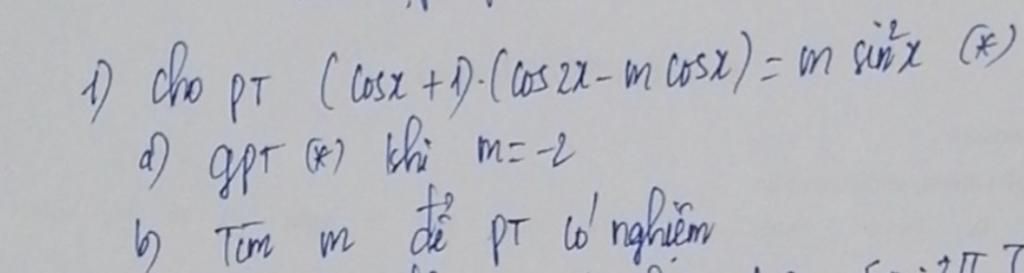 1) Cho PT (cosx + 1).(cos2x - m cosx) = m sin²x (*)
a) gPT (*) khi m = -2
b) Tìm m để PT có nghiệm